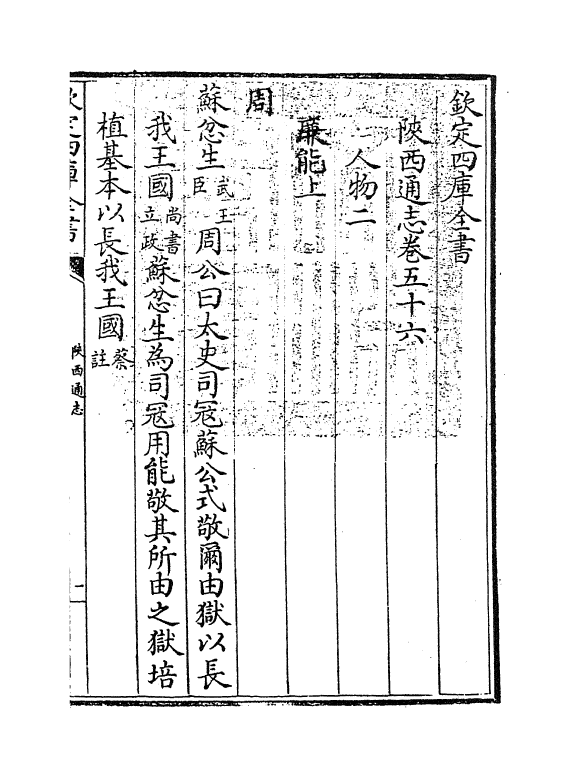 欽定四庫全書
陜西通志卷五十六
人物二
亷能上
周
蘇忿生武王臣周公曰太史司寇蘇公式敬爾由獄以長
我王國尚書立政蘇忿生為司寇用能敬其所由之獄培
植基本以長我王國蔡註
欽定四庫全書
陜西通志
一